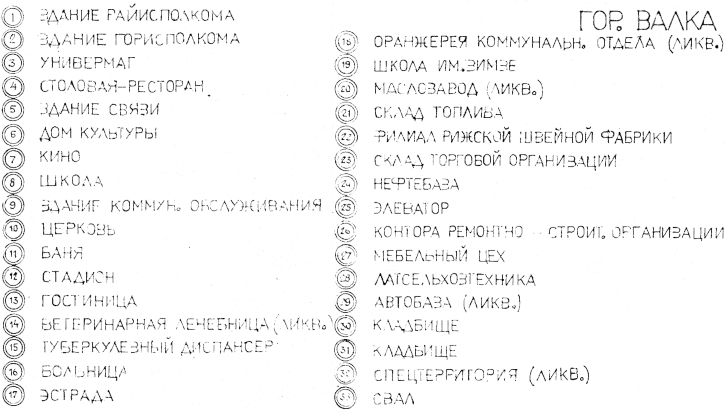 ГОР. ВАЛКА
1 ЗДАНИЕ РАЙИСПОЛКОМА
2 ЗДАНИЕ ГОРИСПОЛКОМА
3 УНИВЕРМАГ
4 СТОЛОВАЯ-РЕСТОРАН
5 ЗДАНИЕ СВЯЗИ
6 ДОМ КУЛЬТУРЫ
7 КИНО
8 ШКОЛА
9 ЗДАНИЕ КОММУН. ОБСЛУЖИВАНИЯ
10 ЦЕРКОВЬ
11 БАНЯ
12 СТАДИОН
13 ГОСТИНИЦА
14 ВЕТЕРИНАРНАЯ ЛЕЧЕБНИЦА (ЛИКВ.)
15 ТУБЕРКУЛЕЗНЫЙ ДИСПАНСЕР
16 БОЛЬНИЦА
17 ЭСТРАДА
18 ОРАНЖЕРЕЯ КОММУНАЛЬН. ОТДЕЛА (ЛИКВ.)
19 ШКОЛА ИМ.ЗИМЗЕ
20 МАСЛОЗАВОД (ЛИКВ.)
21 СКЛАД ТОПЛИВА
22 ФИЛИАЛ РИЖСКОЙ ШВЕЙНОЙ ФАБРИКИ
23 СКЛАД ТОРГОВОЙ ОРГАНИЗАЦИИ
24 НЕФТЕБАЗА
25 ЭЛЕВАТОР
26 КОНТОРА РЕМОНТНО - СТРОИТ. ОРГАНИЗАЦИИ
27 МЕБЕЛЬНЫЙ ЦЕХ
28 ЛАТСЕЛЬХОЗТЕХНИКА
29 АВТОБАЗА (ЛИКВ.)
30 КЛАДБИЩЕ
31 КЛАДБИЩЕ
32 СПЕЦТЕРРИТОРИЯ (ЛИКВ.)
33 СВАЛ